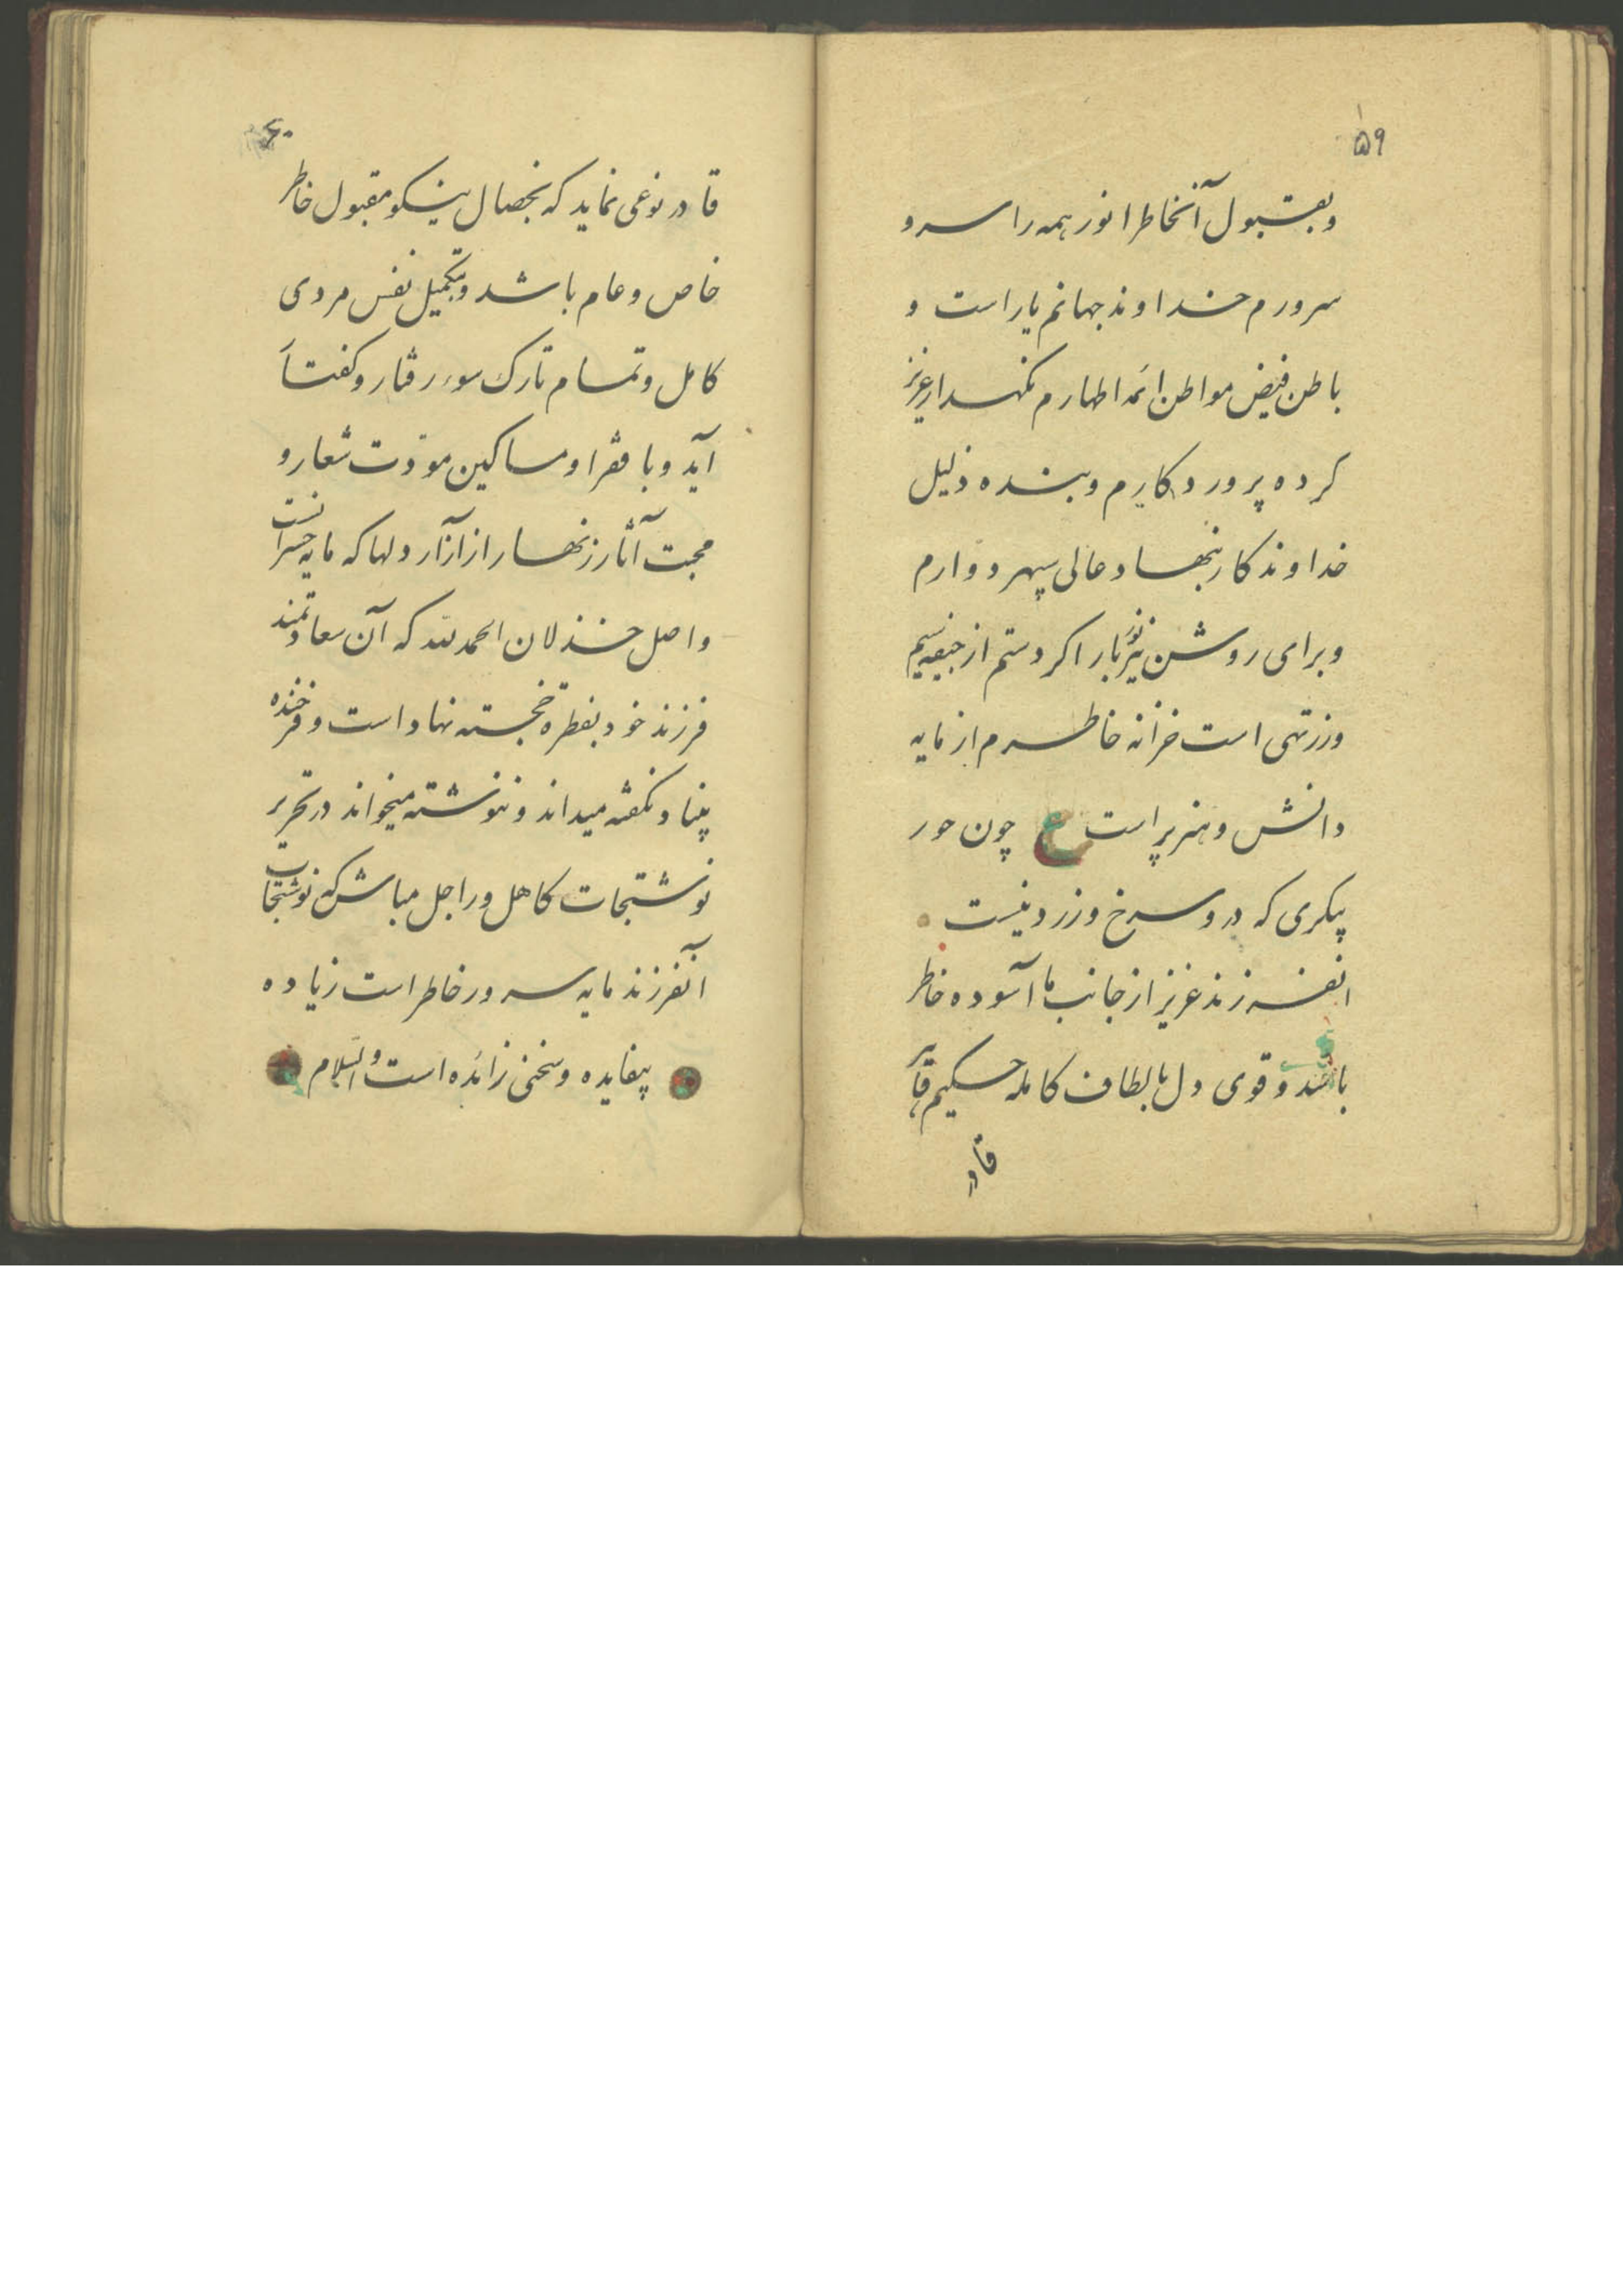 ۵۹
وبقبول آنخاطر انور همه را سرو
سرورم خداوند جهانم یار است و
باطن فیض مواطن ائمه اطهارم نگهدار عزیز
کرده پروردکارم و بنده ذلیل
خداوندکار نهاد عالی سپهر دوارم
وبرای روشن نیر نور بار اکر دستم از سیم
وزر تهی است خزانه خاطرم از مایه
دانش و هنر پر است ع چون حور
پیکری که در و سرخ و زرد نیست
انفرزند عزیز از جانب ما آسوده خاطر
باشد و قوی دل بالطاف کامله حکیم قادر
قادر
۶۰
قادر نوعی نماید که بخصال نیکو مقبول خاطر
خاص و عام باشد و بتکمیل نفس مردی
کامل و تمام تارک سوء رفتار و کفتار
آید و با فقرا و مساکین مودت شعار و
محبت آثار زنهار از آزار دلها که مایه خسرانست
واصل خذلان الحمد لله که آن سعادتمند
فرزند خود بفطرة خجسته نهاد است و فرخنده
بنیاد نکفته میداند و ننوشته میخواند در تحریر
نوشتجات کاهل و راجل مباش که نوشتجات
آنفرزند مایه سرور خاطر است زیاده
بیفایده و سخنی زائده است والسلام